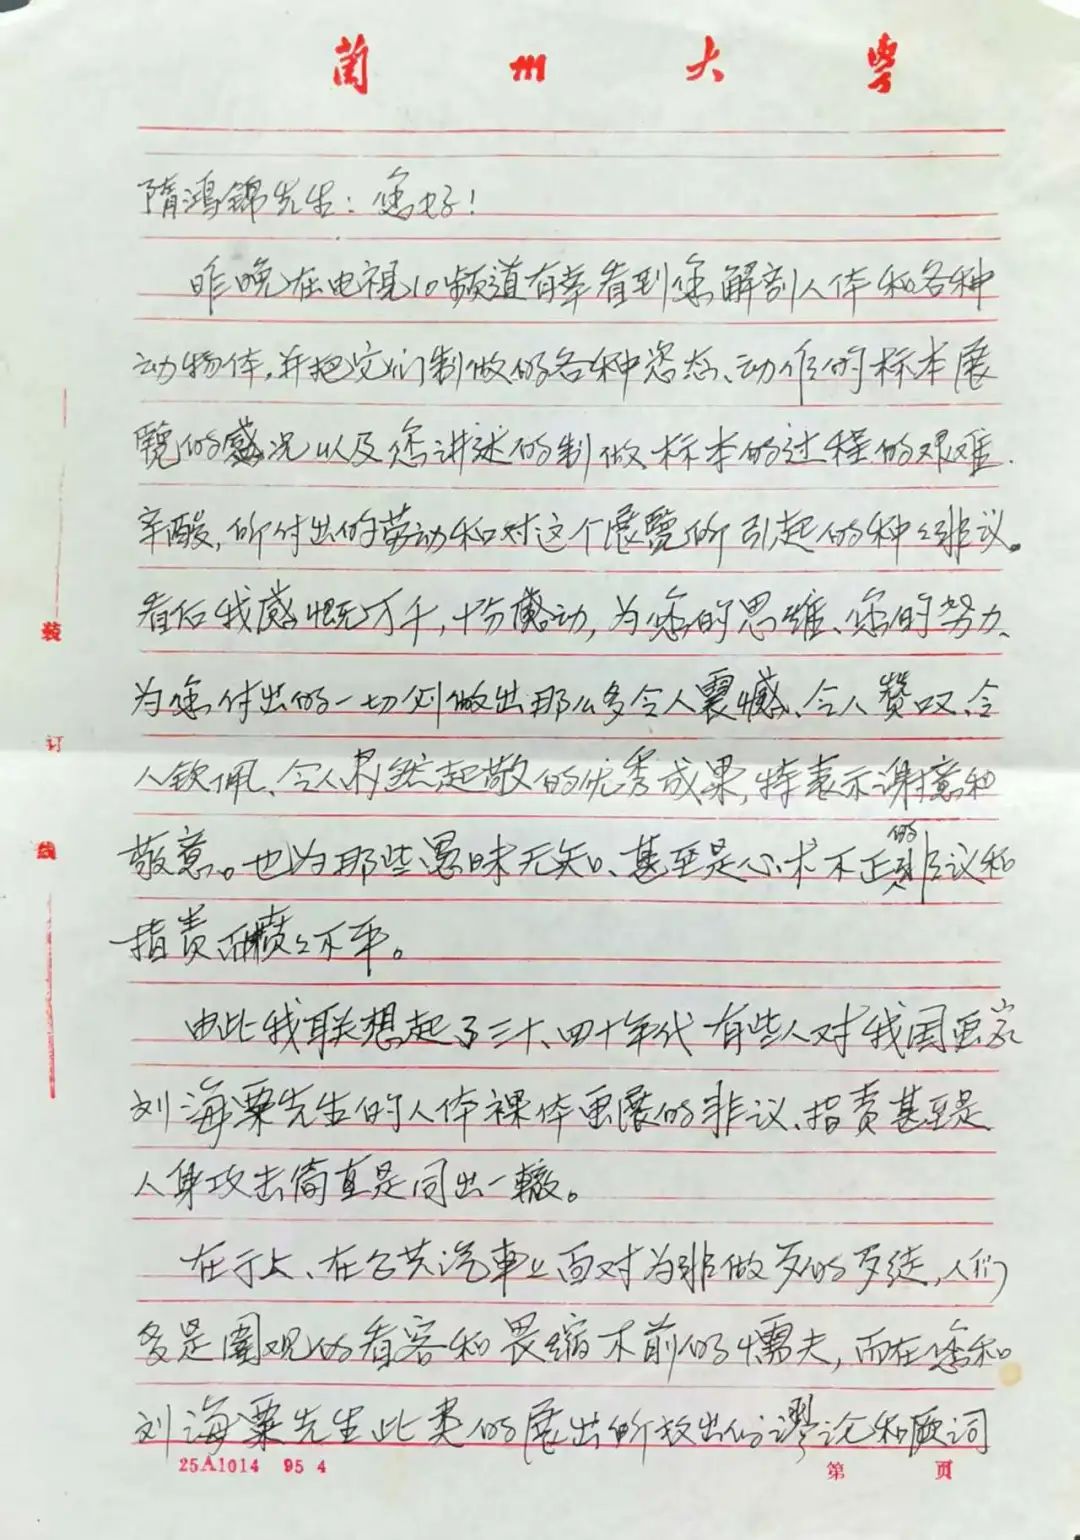 兰州大学
隋鸿锦先生：您好！
昨晚在电视10频道有幸看到您解剖人体和各种
动物体，并把它们制做的各种姿态、动作的标本展
览的盛况以及您讲述的制做标本的过程的艰难.
辛酸，所付出的劳动和对这个展览所引起的种々非议。
看后我感慨万千，十分感动，为您的思维、您的努力、
为您付出的一切创做出那么多令人震憾、令人赞叹、令
人钦佩、令人肃然起敬的优秀成果，特表示谢意和
敬意。也为那些愚昧无知、甚至是心术不正的非议和
指责而愤々不平。
由此我联想起了三十、四十年代有些人对我国画家
刘海粟先生的人体裸体画展的非议、指责甚至是
人身攻击简直是同出一辙。
在于上、在公共汽车上面对为非做歹的歹徒，人们
多是围观的看客和畏缩不前的懦夫，而在您和
刘海粟先生此类的展出所放出的谬论和厥词
装
订
线
25A1014 95 4
第 页